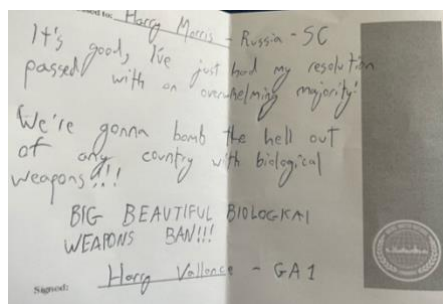 Harry Morris - Russia - SC
It's good, I've just had my resolution
passed with an overwhelming majority!
We're gonna bomb the hell out
of any country with biological
weapons!!!
BIG BEAUTIFUL BIOLOGICAL
WEAPONS BAN!!!
Signed: Harry Vallance - GA1